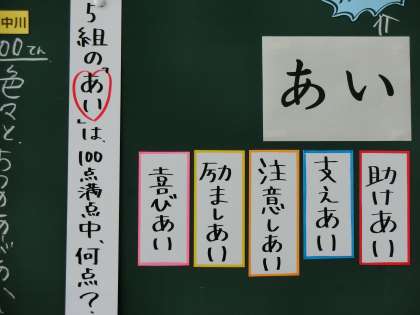 あい
助けあい
支えあい
注意しあい
励ましあい
喜びあい
5組の「あい」は、100点満点中、何点？
中川